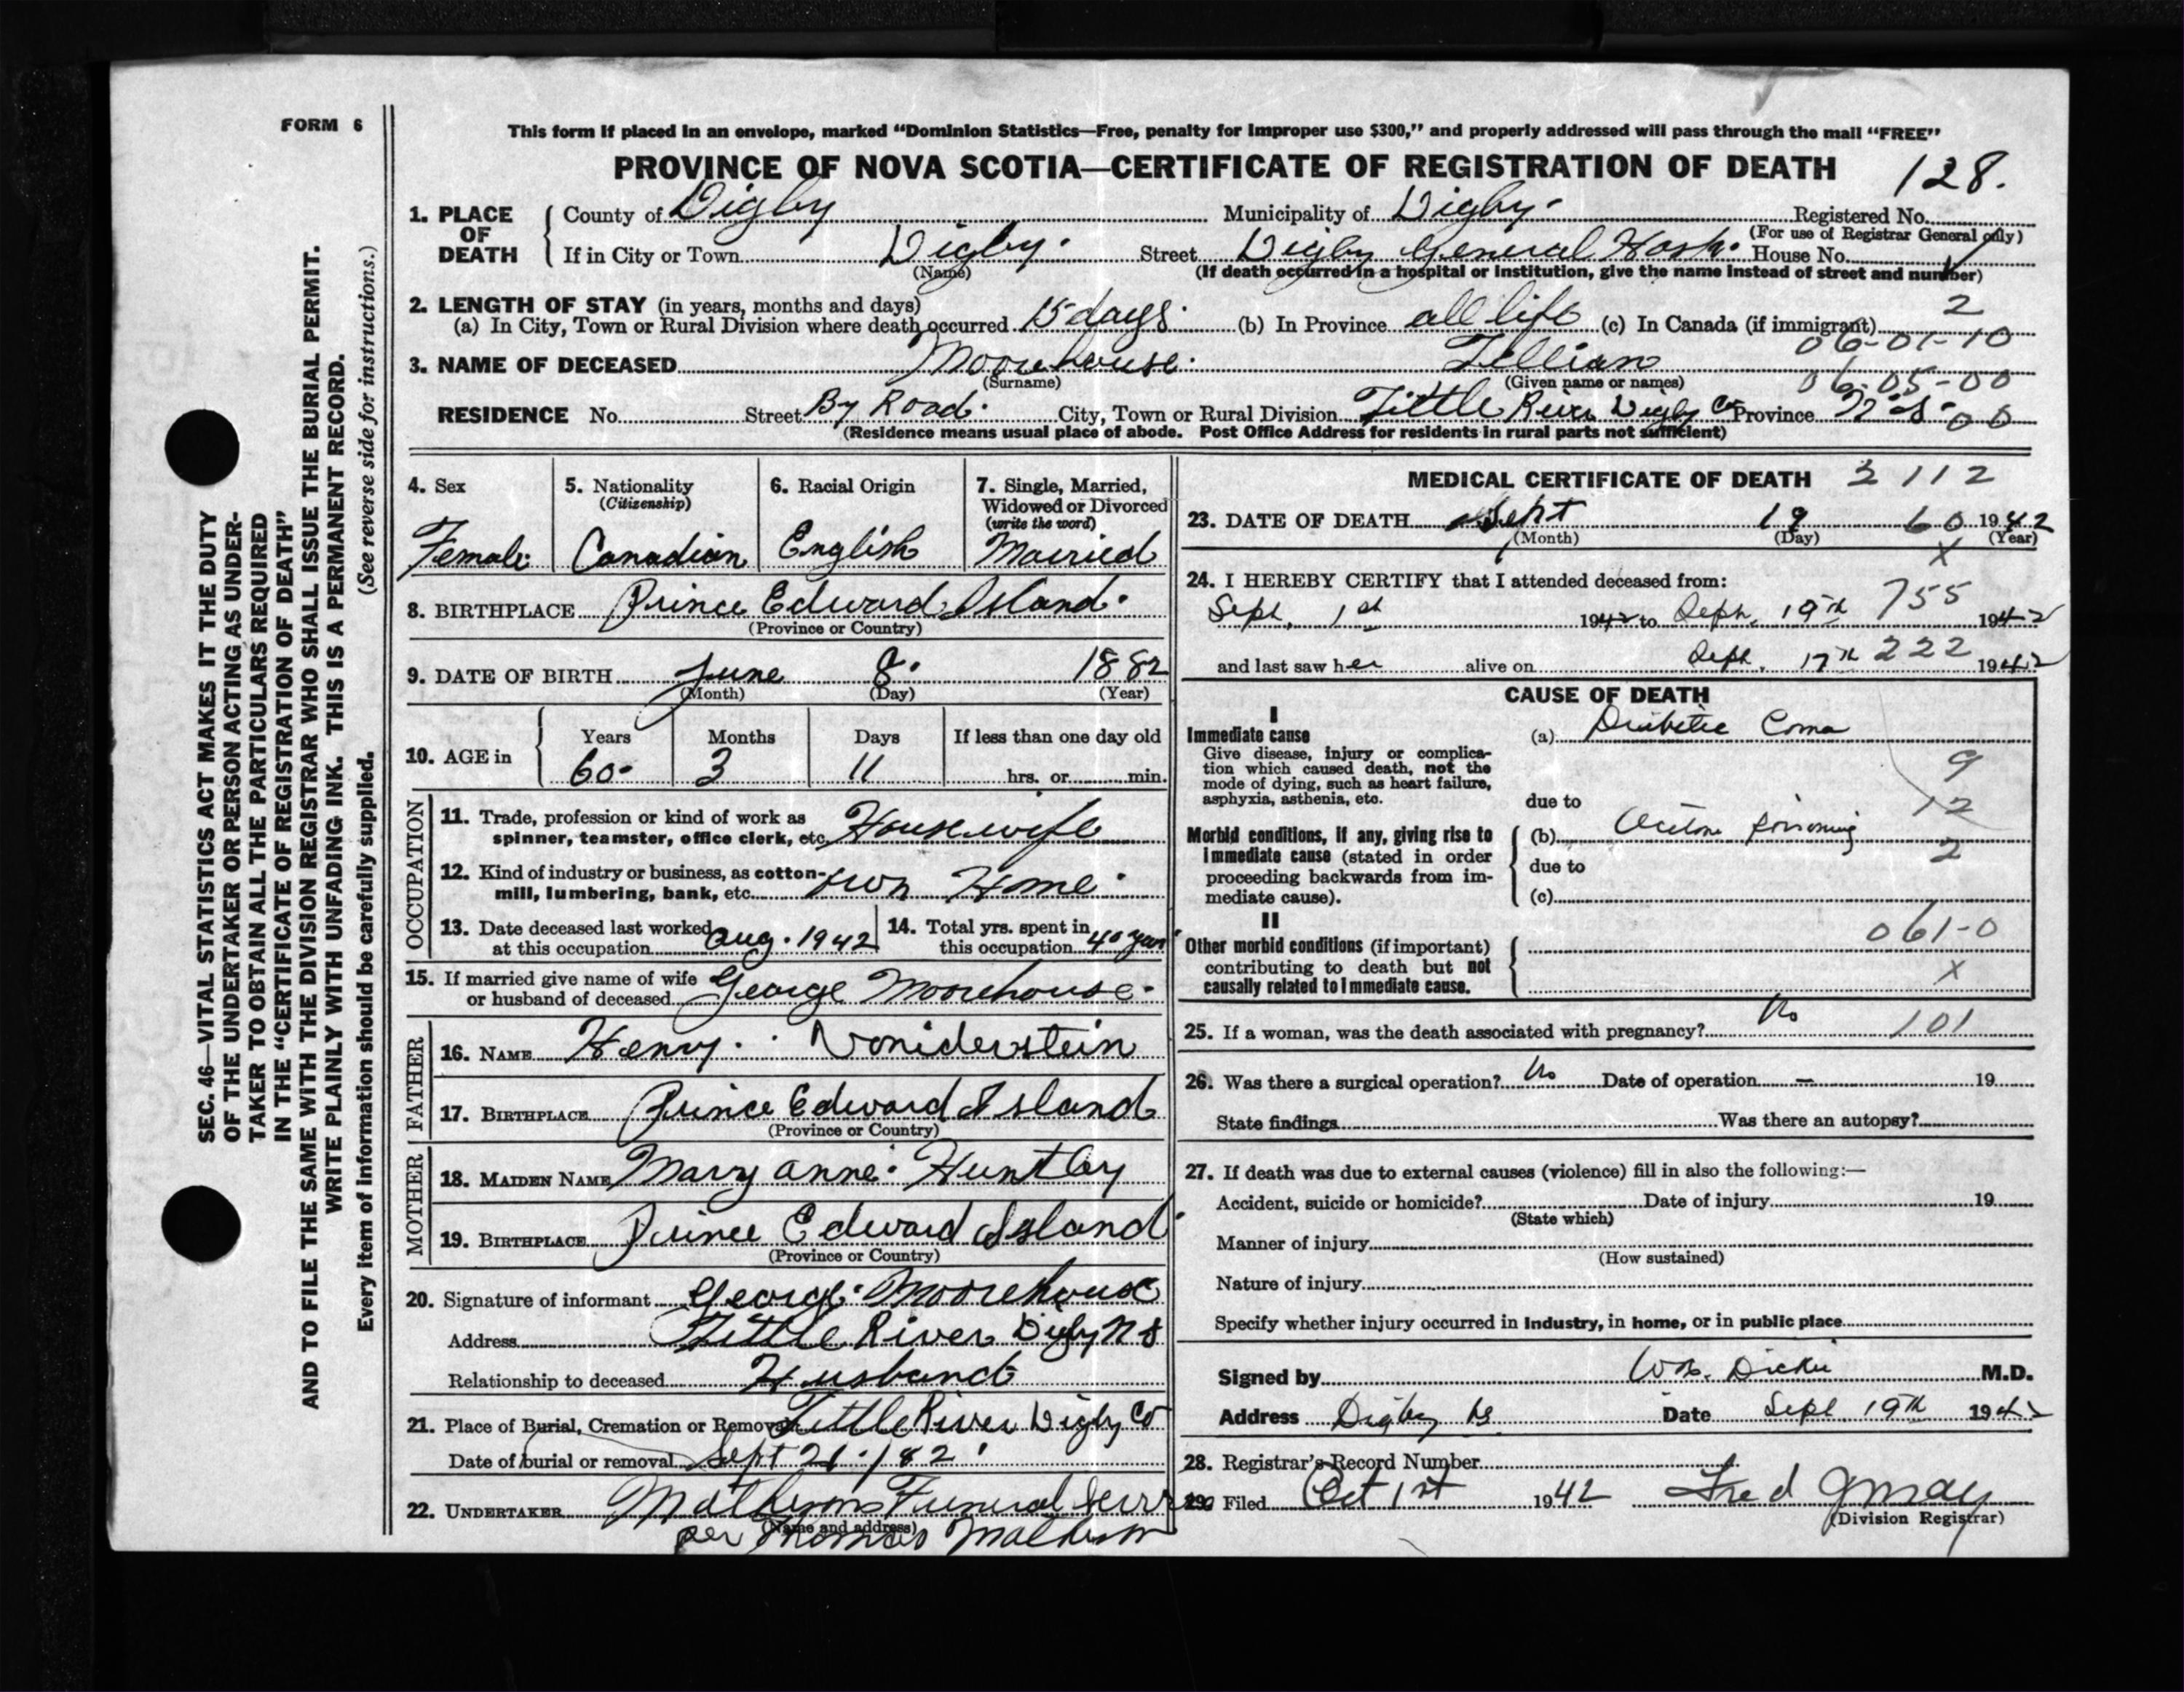 FORM 6
This form if placed in an envelope, marked "Dominion Statistics—Free, penalty for improper use $300," and properly addressed will pass through the mail "FREE"
PROVINCE OF NOVA SCOTIA—CERTIFICATE OF REGISTRATION OF DEATH
128.
1. PLACE OF DEATH County of Digby Municipality of Digby. Registered No.
(For use of Registrar General only)
If in City or Town Digby. Street Digby General Hosp. House No.
(Name) (If death occurred in a hospital or institution, give the name instead of street and number)
2. LENGTH OF STAY (in years, months and days)
(a) In City, Town or Rural Division where death occurred 15 days. (b) In Province all life (c) In Canada (if immigrant) 2
06-01-10
3. NAME OF DECEASED Moorehouse. Lillian
(Surname) (Given name or names) 06-05-00
RESIDENCE No. Street By Road. City, Town or Rural Division Little River Digby Co Province N.S. 00
(Residence means usual place of abode. Post Office Address for residents in rural parts not sufficient)
4. Sex 5. Nationality 6. Racial Origin 7. Single, Married,
(Citizenship) Widowed or Divorced
(write the word)
Female Canadian English Married
8. BIRTHPLACE Prince Edward Island.
(Province or Country)
9. DATE OF BIRTH June 8. 1882
(Month) (Day) (Year)
10. AGE in Years Months Days If less than one day old
60. 3 11 hrs. or min.
OCCUPATION
11. Trade, profession or kind of work as
spinner, teamster, office clerk, etc. Housewife
12. Kind of industry or business, as cotton-
mill, lumbering, bank, etc. own Home.
13. Date deceased last worked
at this occupation Aug. 1942
14. Total yrs. spent in
this occupation 40 years
15. If married give name of wife
or husband of deceased George Moorehouse.
FATHER
16. NAME Henry. Voniderstein
17. BIRTHPLACE Prince Edward Island
(Province or Country)
MOTHER
18. MAIDEN NAME Mary Anne. Huntley
19. BIRTHPLACE Prince Edward Island
(Province or Country)
20. Signature of informant George Moorehouse
Address Little River Digby N S
Relationship to deceased Husband
21. Place of Burial, Cremation or Removal Little River Digby Co
Date of burial or removal Sept 21.
22. UNDERTAKER Mathesons Funeral Serv
(Name and address)
per Thomas Matheson
MEDICAL CERTIFICATE OF DEATH 3112
23. DATE OF DEATH Sept 19 60 1942
(Month) (Day) (Year)
X
24. I HEREBY CERTIFY that I attended deceased from:
Sept. 1st 1942 to Sept. 19th 755 1942
and last saw her alive on Sept. 17th 222 1942
CAUSE OF DEATH
I
Immediate cause (a) Diabetic Coma
Give disease, injury or complica-
tion which caused death, not the
mode of dying, such as heart failure,
asphyxia, asthenia, etc. due to
9
12
Morbid conditions, if any, giving rise to (b) Acetone Poisoning
immediate cause (stated in order 2
proceeding backwards from im- due to
mediate cause). (c)
II
Other morbid conditions (if important) 061-0
contributing to death but not
causally related to immediate cause. X
25. If a woman, was the death associated with pregnancy? No 101
26. Was there a surgical operation? No Date of operation — 19
State findings Was there an autopsy?
27. If death was due to external causes (violence) fill in also the following:—
Accident, suicide or homicide? Date of injury 19
(State which)
Manner of injury
(How sustained)
Nature of injury
Specify whether injury occurred in industry, in home, or in public place
Signed by Dickie M.D.
Address Digby NS Date Sept 19th 1942
28. Registrar's Record Number
29. Filed Oct 1st 1942 Fred J May
(Division Registrar)
SEC. 46—VITAL STATISTICS ACT MAKES IT THE DUTY
OF THE UNDERTAKER OR PERSON ACTING AS UNDER-
TAKER TO OBTAIN ALL THE PARTICULARS REQUIRED
IN THE "CERTIFICATE OF REGISTRATION OF DEATH"
AND TO FILE THE SAME WITH THE DIVISION REGISTRAR WHO SHALL ISSUE THE BURIAL PERMIT.
WRITE PLAINLY WITH UNFADING INK. THIS IS A PERMANENT RECORD.
Every item of information should be carefully supplied. (See reverse side for instructions.)